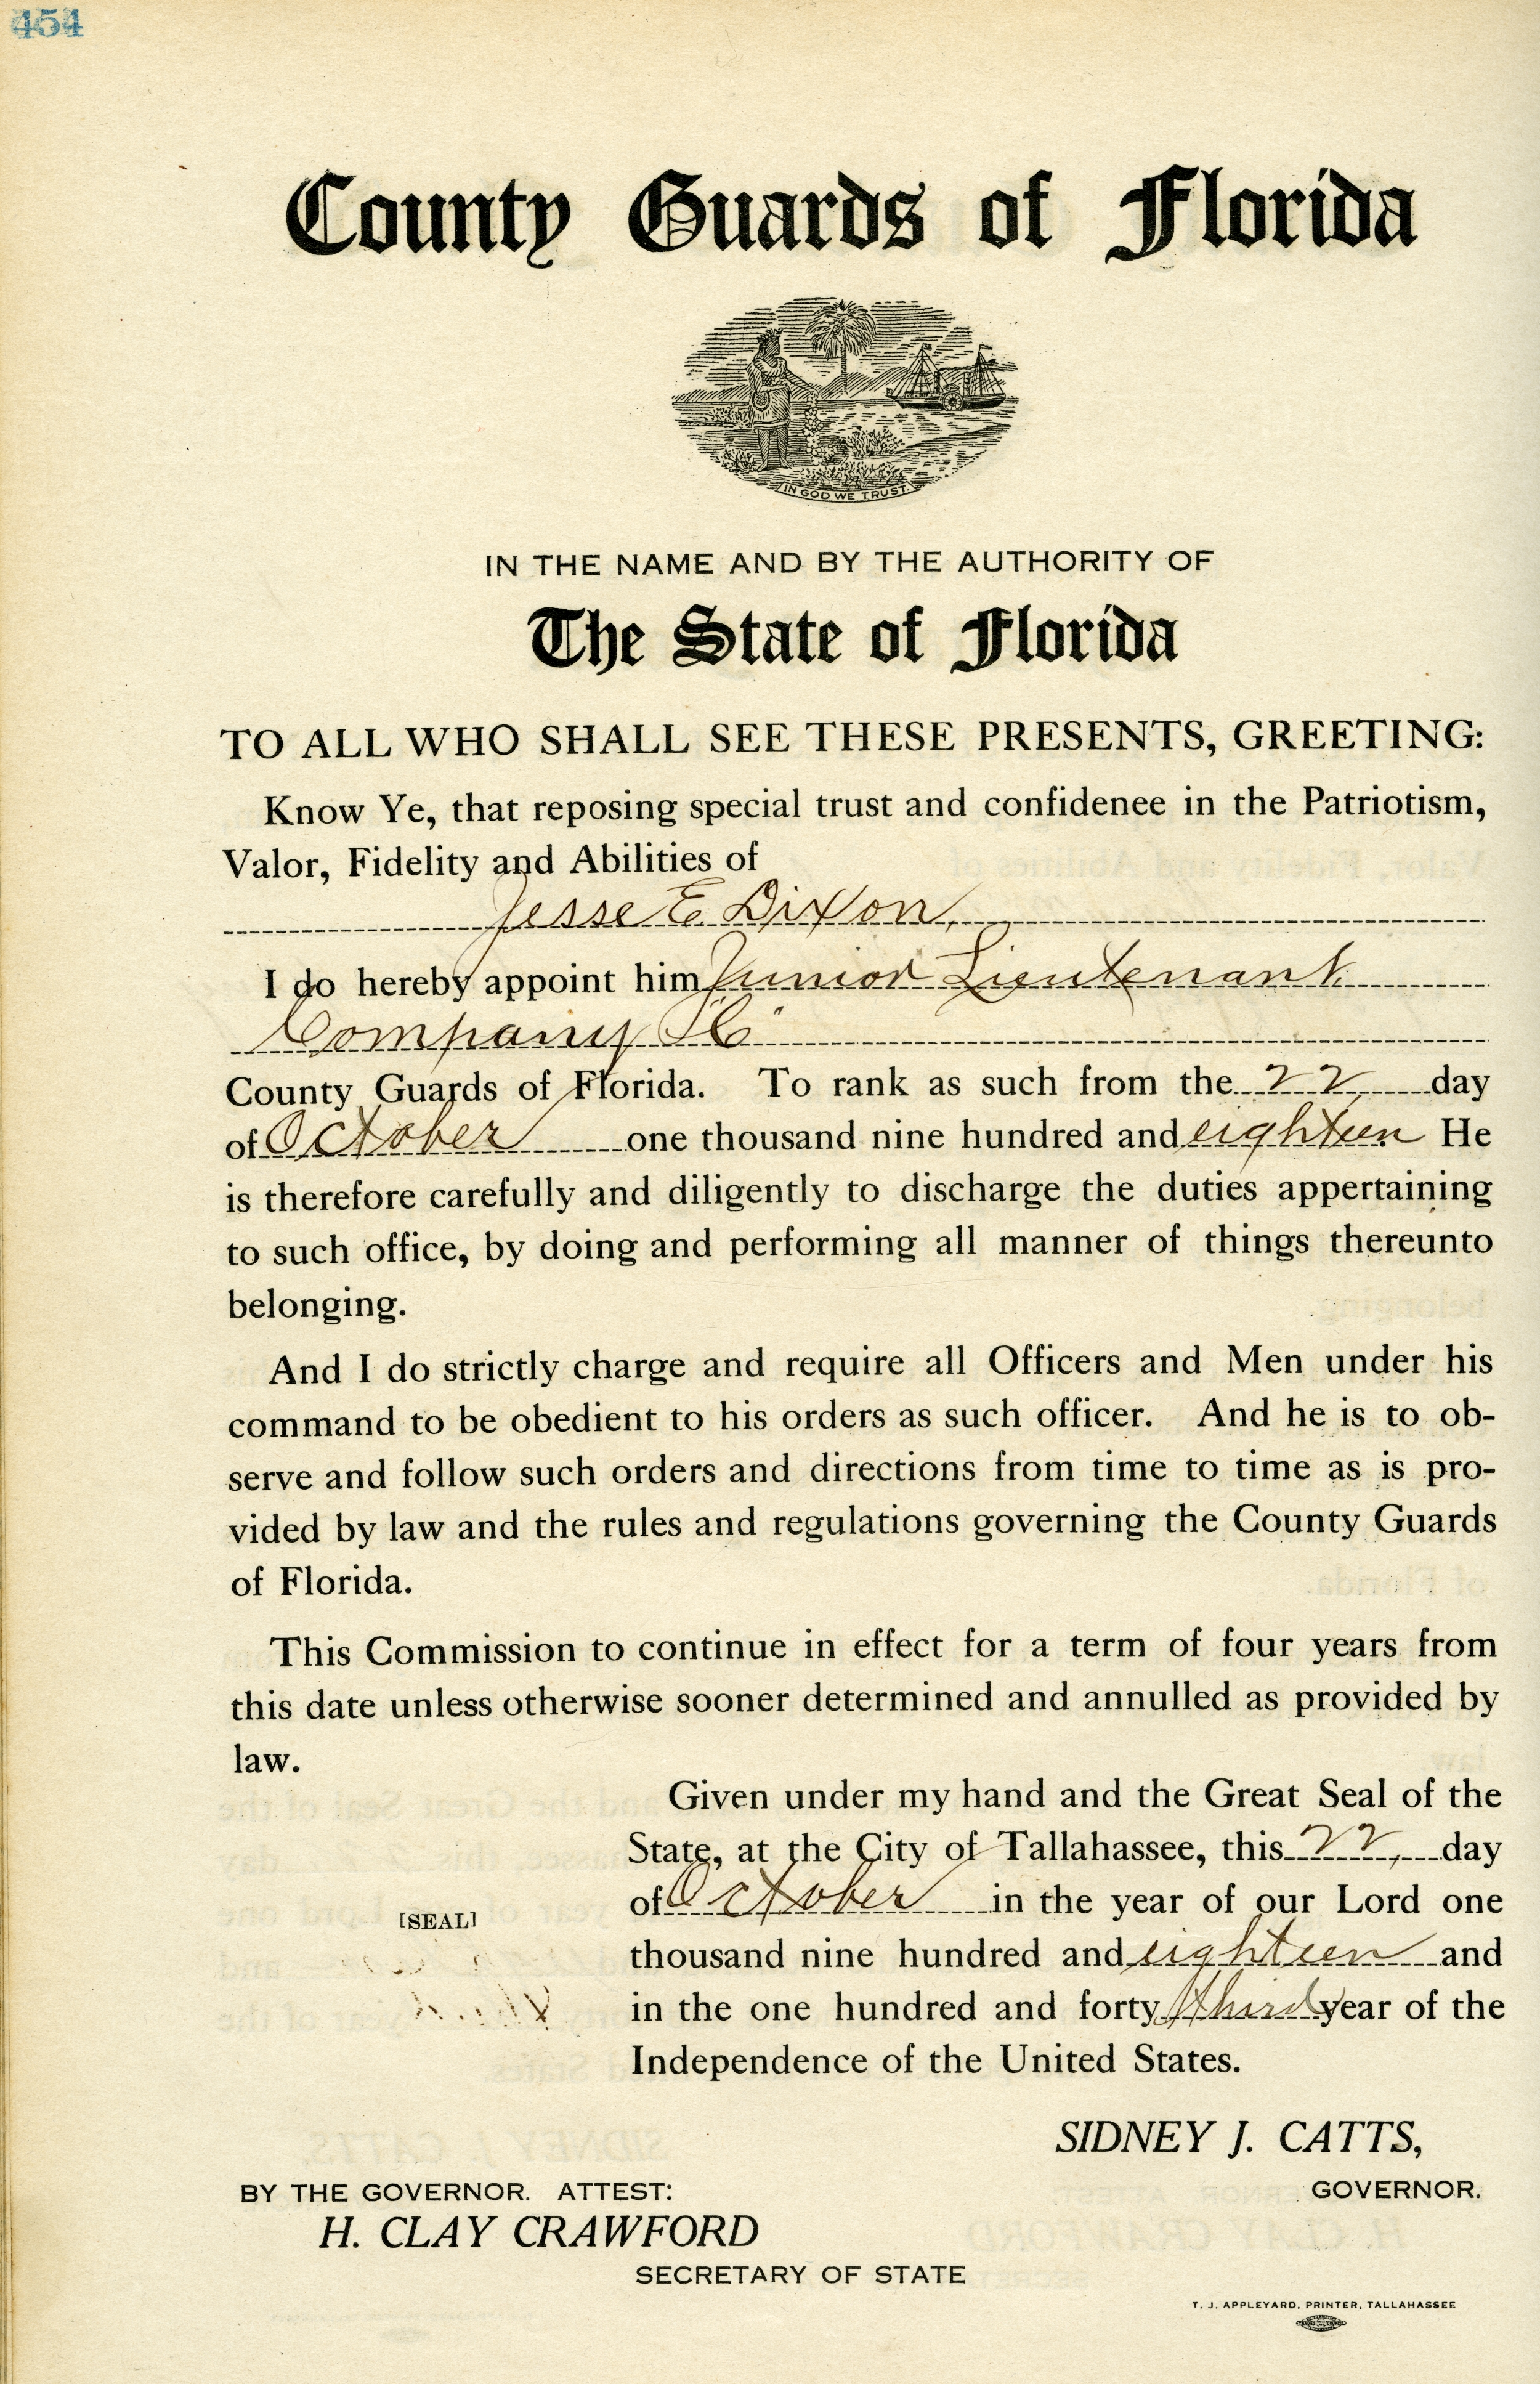 454
County Guards of Florida
IN GOD WE TRUST.
IN THE NAME AND BY THE AUTHORITY OF
The State of Florida
TO ALL WHO SHALL SEE THESE PRESENTS, GREETING:
Know Ye, that reposing special trust and confidenee in the Patriotism,
Valor, Fidelity and Abilities of
Jesse E. Dixon,
I do hereby appoint him Junior Lieutenant
Company
County Guards of Florida. To rank as such from the 22 day
of October one thousand nine hundred and eighteen He
is therefore carefully and diligently to discharge the duties appertaining
to such office, by doing and performing all manner of things thereunto
belonging.
And I do strictly charge and require all Officers and Men under his
command to be obedient to his orders as such officer. And he is to ob-
serve and follow such orders and directions from time to time as is pro-
vided by law and the rules and regulations governing the County Guards
of Florida.
This Commission to continue in effect for a term of four years from
this date unless otherwise sooner determined and annulled as provided by
law.
Given under my hand and the Great Seal of the
State, at the City of Tallahassee, this 22, day
of October in the year of our Lord one
[SEAL]
thousand nine hundred and eighteen and
in the one hundred and forty third year of the
Independence of the United States.
SIDNEY J. CATTS,
GOVERNOR.
BY THE GOVERNOR. ATTEST:
H. CLAY CRAWFORD
SECRETARY OF STATE
T. J. APPLEYARD, PRINTER, TALLAHASSEE